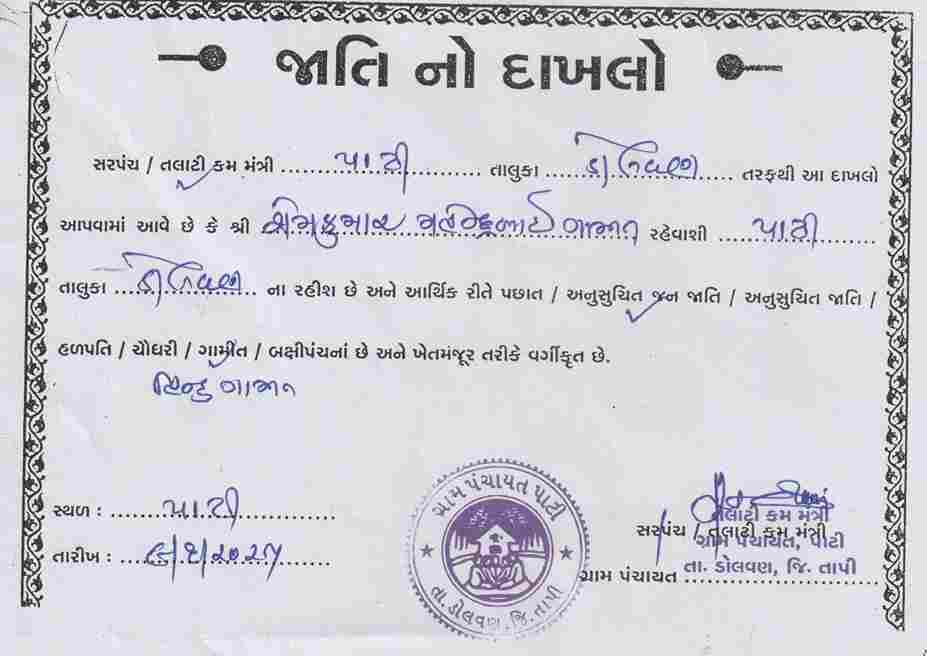 જાતિ નો દાખલો
સરપંચ / તલાટી કમ મંત્રી ........ પાટી ........ તાલુકા ........ ડોલવણ ........ તરફથી આ દાખલો
આપવામાં આવે છે કે શ્રી ગામીત રહેવાશી ........ પાટી ........
તાલુકા ........ ડોલવણ ........ ના રહીશ છે અને આર્થિક રીતે પછાત / અનુસુચિત જન જાતિ / અનુસુચિત જાતિ /
હળપતિ / ચૌધરી / ગામીત / બક્ષીપંચનાં છે અને ખેતમંજૂર તરીકે વર્ગીકૃત છે.
હિન્દુ ગામીત
સ્થળ : ........ પાટી ........
તારીખ :
ગ્રામ પંચાયત પાટી
તા. ડોલવણ, જિ. તાપી
સરપંચ / તલાટી કમ મંત્રી
તલાટી કમ મંત્રી
ગ્રામ પંચાયત, પાટી
ગ્રામ પંચાયત ........
તા. ડોલવણ, જિ. તાપી